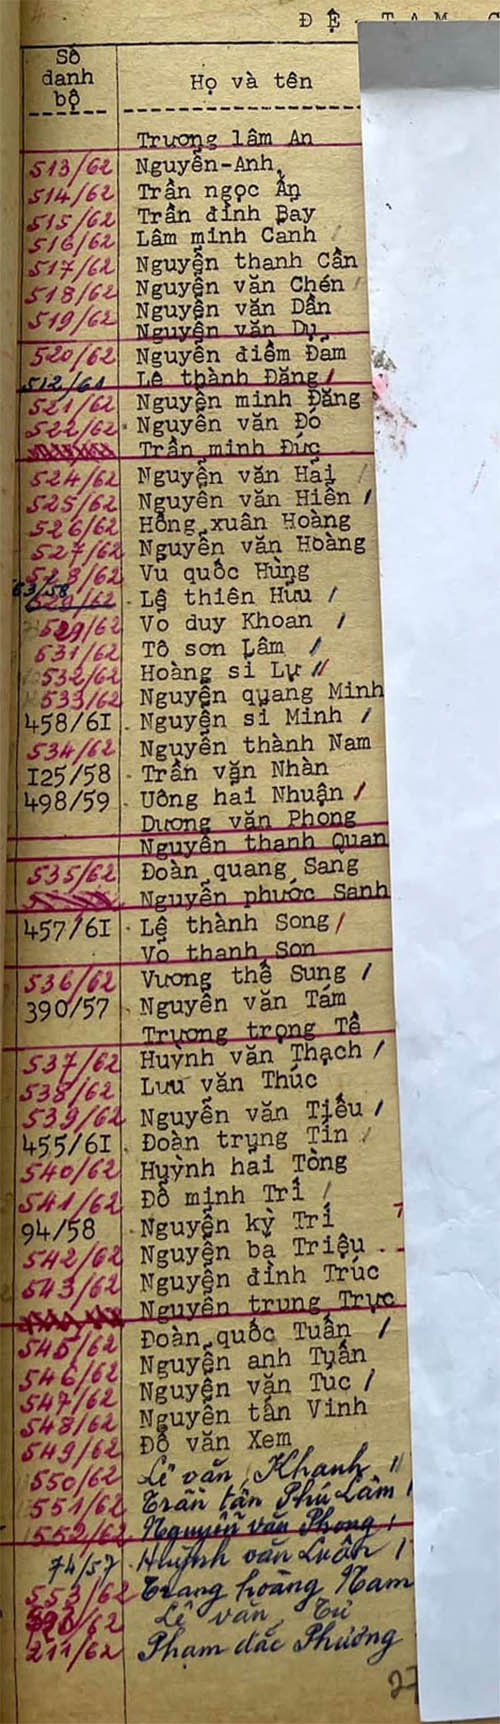 ĐỆ TAM C
Số danh bộ Họ và tên
Trương lâm An
513/62 Nguyễn-Anh
514/62 Trần ngọc Ẩn
515/62 Trần đình Bay
516/62 Lâm minh Canh
517/62 Nguyễn thanh Cần
518/62 Nguyễn văn Chén
519/62 Nguyễn văn Dần
Nguyễn văn Dụ
520/62 Nguyễn điềm Đăm
512/61 Lê thành Đăng
521/62 Nguyễn minh Đăng
522/62 Nguyễn văn Đó
Trần minh Đức
524/62 Nguyễn văn Hải
525/62 Nguyễn văn Hiền
526/62 Hồng xuân Hoàng
527/62 Nguyễn văn Hoàng
528/62 Vũ quốc Hùng
63/58 529/62 Lê thiên Hữu
529/62 Võ duy Khoan
531/62 Tô sơn Lâm
532/62 Hoàng sĩ Lự
533/62 Nguyễn quang Minh
458/6I Nguyễn sĩ Minh
534/62 Nguyễn thành Nam
I25/58 Trần văn Nhàn
498/59 Uông hai Nhuận
Dương văn Phong
Nguyễn thanh Quan
535/62 Đoàn quang Sang
Nguyễn phước Sanh
457/6I Lê thành Song
Võ thanh Sơn
536/62 Vương thế Sung
390/57 Nguyễn văn Tám
Trương trọng Tề
537/62 Huỳnh văn Thạch
538/62 Lưu văn Thúc
539/62 Nguyễn văn Tiếu
455/6I Đoàn trung Tín
540/62 Huỳnh hai Tòng
541/62 Đỗ minh Trí
94/58 Nguyễn kỳ Trí
542/62 Nguyễn bá Triệu
543/62 Nguyễn đình Trúc
Nguyễn trung Trực
545/62 Đoàn quốc Tuấn
546/62 Nguyễn anh Tuấn
547/62 Nguyễn văn Túc
548/62 Nguyễn tấn Vinh
549/62 Đỗ văn Xem
550/62 Lê văn Khanh
551/62 Trần tấn Phú Lâm
552/62 Nguyễn văn Phong
74/57 Huỳnh văn Luân
553/62 Trang hoàng Nam
Lê văn Tư
211/62 Phạm đắc Phương
27